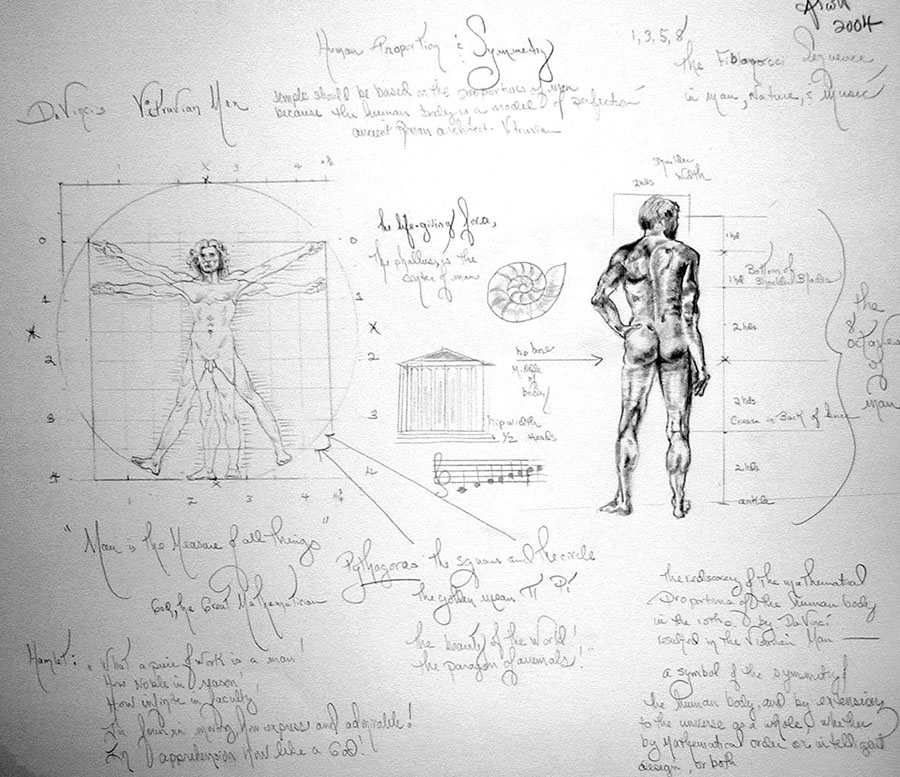 2004
Human Proportion & Symmetry
1, 3, 5, 8,
the Fibonocci Sequence
in man, Nature, & Music
DaVinci's Vitruvian Man
temple should be based on the proportions of man
because the human body is a model of perfection
ancient Roman architect - Vitruvian
shoulder
width
2 hds
the life-giving force,
the phallus, is the
center of man
0
1
2
3
4
0
1
2
3
4
1
2
3
4
1 hd
1 hd
Bottom of
Shoulder Blades
2 hds
2 hds
Crease in Back of knee
2 hds
ankle
the
8
octaves
of
man
hip bone
Middle
of
body
hip width
1 1/2 heads
"Man is the Measure of all Things"
Pythagoras the square and the circle
the golden mean π Pi
God, the Great Mathematician
Hamlet: "What a piece of work is a man!
How noble in reason!
How infinite in faculty!
In form in moving how express and admirable!
In apprehension how like a God!
the beauty of the world!
the paragon of animals!"
the rediscovery of the mathematical
Proportions of the human body
in the 15th c. by DaVinci
resulted in the Vitruvian Man —
a symbol of the symmetry of
the human body, and by extension
to the universe as a whole, whether
by Mathematical order or intelligent
design, or both